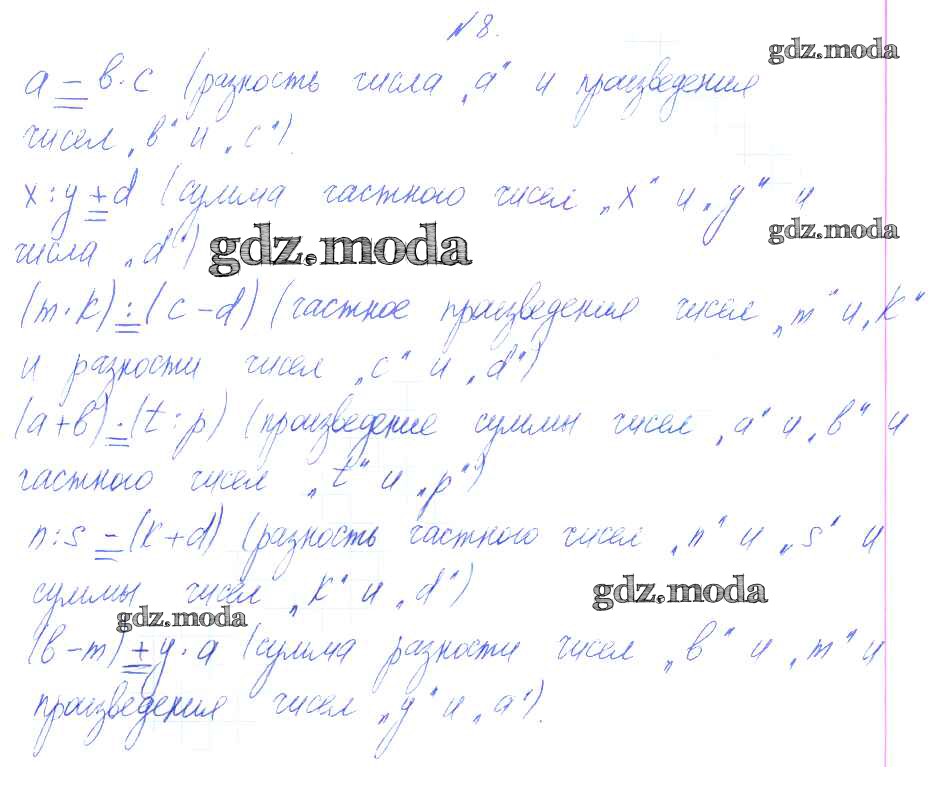 № 8.
gdz.moda
a − в · c (разность числа „a“ и произведения
чисел „в“ и „c“).
x : y + d (сумма частного чисел „x“ и „y“ и
gdz.moda
числа „d“)
gdz.moda
(m · k) : (c − d) (частное произведения чисел „m“ и „k“
и разности чисел „c“ и „d“)
(a + в) · (t : p) (произведение суммы чисел „a“ и „в“ и
частного чисел „t“ и „p“)
n : s − (k + d) (разность частного чисел „n“ и „s“ и
суммы чисел „k“ и „d“)
gdz.moda
gdz.moda
(в − m) + y · a (сумма разности чисел „в“ и „m“ и
произведения чисел „y“ и „a“).